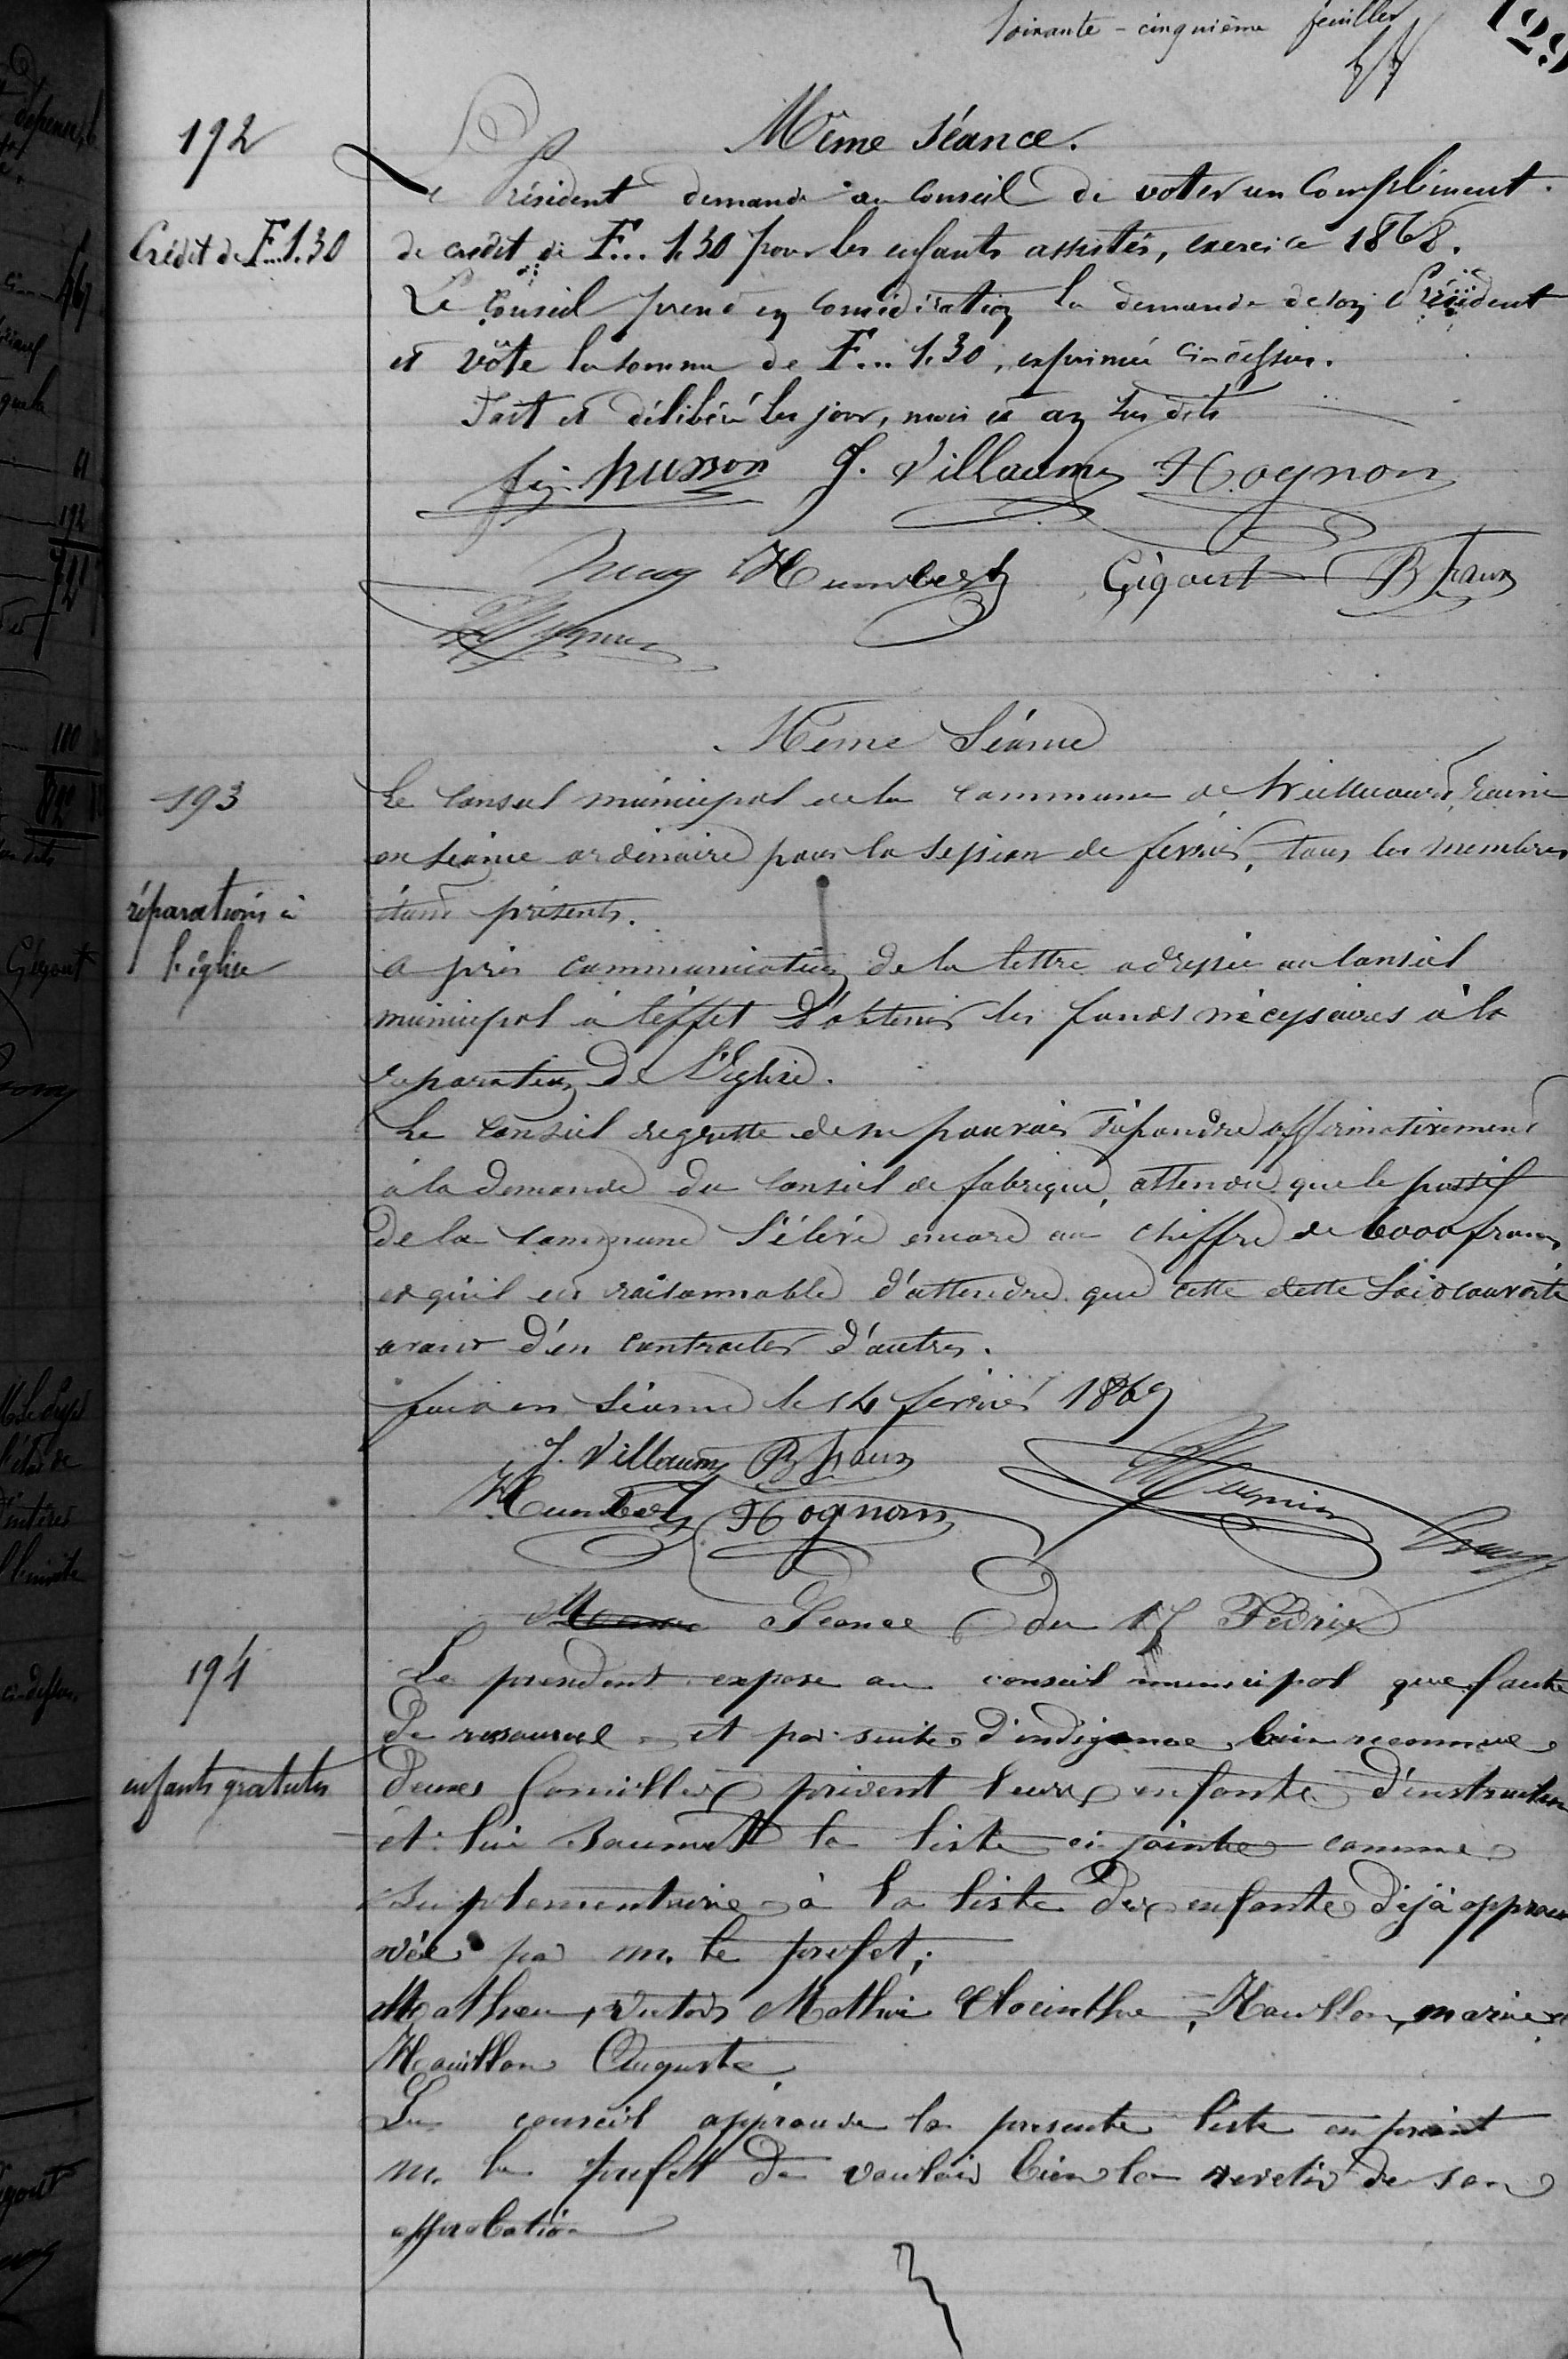 Soixante-cinquième feuillet
129
192
Même Séance.
Le Président demande au Conseil de voter un Complément
Crédit de F...1.30
de crédit de F... 1.30 pour les enfants assistés, exercice 1868.
Le Conseil prend en considération la demande de son Président
et vôte la somme de F... 1.30, exprimée ci-dessus.
Fait et délibéré les jour, mois et an sus dits
husson J. Villaume Hognon
Humbert Gigout
Même Séance
193
Le Conseil municipal de la commune de réuni
en séance ordinaire pour la session de fevrier, tous les membres
réparations à
étant présents.
l'église
a près communication de la lettre adressée au Conseil
municipal à l'éffet d'obtenir les fonds nécessaires à la
reparation de l'Eglise.
Le Conseil regrette de ne pouvoir répondre affirmativement
à la demande du Conseil de fabrique, attendu que le passif
de la commune s'élève encore au chiffre de 6000 francs
et qu'il est raisonnable d'attendre que cette dette soit couverte
avant d'en contracter d'autres.
fait en séance le 14 fevrier 1869
J. Villaume
Humbert Hognon
Seance du 17 Fevrier
194
Le president expose au conseil municipal que faute
de ressource et par suite d'indigence bien reconnue
enfants gratuits
deux familles privent leurs enfants d'instruction
et lui soumet la liste ci jointe comme
suplementaire à la liste des enfants déjà approu
vée par m. le prefet;
Mathieu, Victor Mathieu Hocinthe, Houillon, marie et
Houillon Auguste.
Le conseil approuve la presente liste en priant
m. le prefet de vouloir bien la revetir de son
approbation